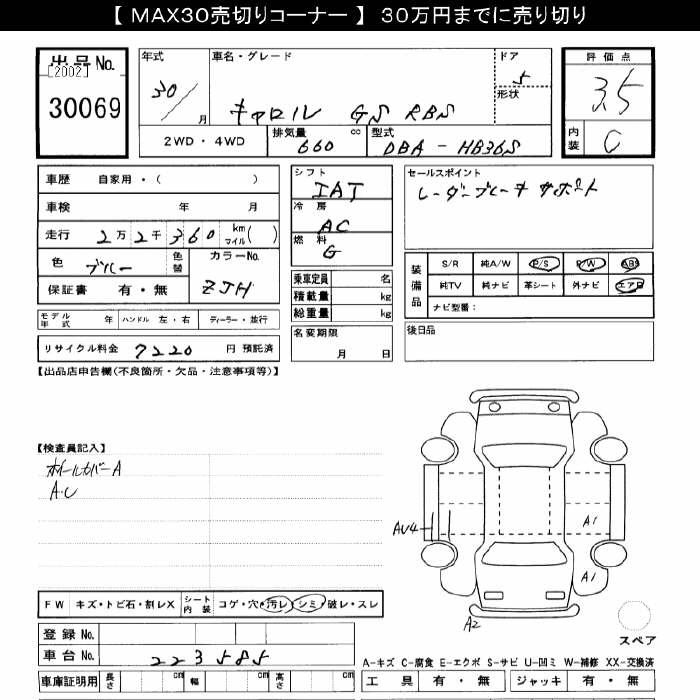 【 MAX30売切りコーナー 】 30万円までに売り切り
出品No.
[2002]
30069
年式 車名・グレード ドア
30/ 月 キャロル GS RBS 5
形状
2WD・4WD 排気量 660 cc 型式 DBA - HB36S
評価点
3.5
内装 C
車歴 自家用・( )
車検 年 月
走行 2万2千360 km マイル( )
色 ブルー 色替 カラーNo.
保証書 有・無 ZJH
モデル年式 年 ハンドル 左・右 ディーラー・並行
リサイクル料金 7220 円 預託済
シフト
IAT
冷房
AC
燃料
G
乗車定員 名
積載量 kg
総重量 kg
名変期限
月 日
セールスポイント
レーダーブレーキサポート
装備品 S/R 純A/W P/S P/W ABS
純TV 純ナビ 革シート 外ナビ エアB
ナビ型番:
後日品
【出品店申告欄(不良箇所・欠品・注意事項等)】
【検査員記入】
ホイールカバーA
A.U
AU4
A1
A1
A2
スペア
FW キズ・トビ石・割レX シート内装 コゲ・穴・汚レ・シミ・破レ・スレ
登録No.
車台No. 223585
車庫証明用 長さ cm 幅 cm 高さ cm
A-キズ C-腐食 E-エクボ S-サビ U-凹ミ W-補修 XX-交換済
工具 有・無 ジャッキ 有・無